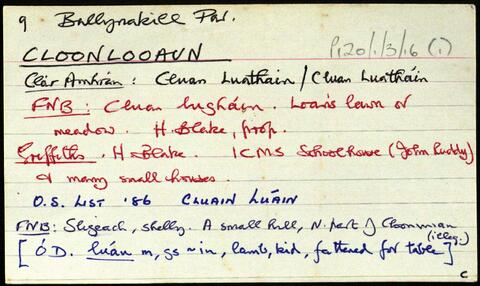 9 Ballynakill Par.
CLOONLOOAUN P120/1/3/16 (1)
Clár Amhrán: Cluan Luatháin / Cluan Luatháin
FNB: Cluan lugháin. Loan's lawn or
meadow. H. Blake, prop.
Griffiths. H Blake. ICMS Schoolhouse (John Ruddy)
& many small houses.
O.S. LIST '86 CLUAIN LUÁIN
FNB: Sligeach, shelly. A small hill, N. part of Cloonmian
(illeg.)
[Ó.D. luán m, gs ~in, lamb, kid, fattened for table]
c